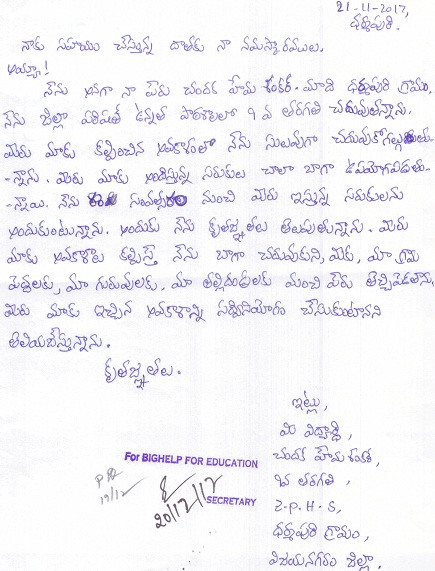 21-11-2017,
ధర్మపురి.
నాకు సహాయం చేస్తున్న దాతకు నా నమస్కారములు.
అయ్యా!
నేను అనగా నా పేరు చందక హేమ శంకర్. మాది ధర్మపురి గ్రామం.
నేను జిల్లా పరిషత్ ఉన్నత పాఠశాలలో 9 వ తరగతి చదువుతున్నాను.
మీరు మాకు కల్పించిన అవకాశంతో నేను సులువుగా చదువుకోగల్గుతు-
-న్నాను. మీరు మాకు అందిస్తున్న సరుకులు చాలా బాగా ఉపయోగపడుతు-
-న్నాయి. నేను సంవత్సరం నుంచి మీరు ఇస్తున్న సరుకులను
అందుకుంటున్నాను. అందుకు నేను కృతజ్ఞతలు తెలుపుతున్నాను. మీరు
మాకు అవకాశం కల్పిస్తే నేను బాగా చదువుకుని, మీకు, మా గ్రామ
పెద్దలకు, మా గురువులకు, మా తల్లిదండ్రులకు మంచి పేరు తెచ్చిపెడతాను.
మీరు మాకు ఇచ్చిన అవకాశాన్ని సద్వినియోగం చేసుకుంటానని
తెలియజేస్తున్నాను.
కృతజ్ఞతలు.
ఇట్లు,
మీ విద్యార్థి,
చందక హేమ శంకర్,
9వ తరగతి,
Z.P.H.S,
ధర్మపురి గ్రామం,
విజయనగరం జిల్లా.
For BIGHELP FOR EDUCATION
19/12
20/12/17
SECRETARY